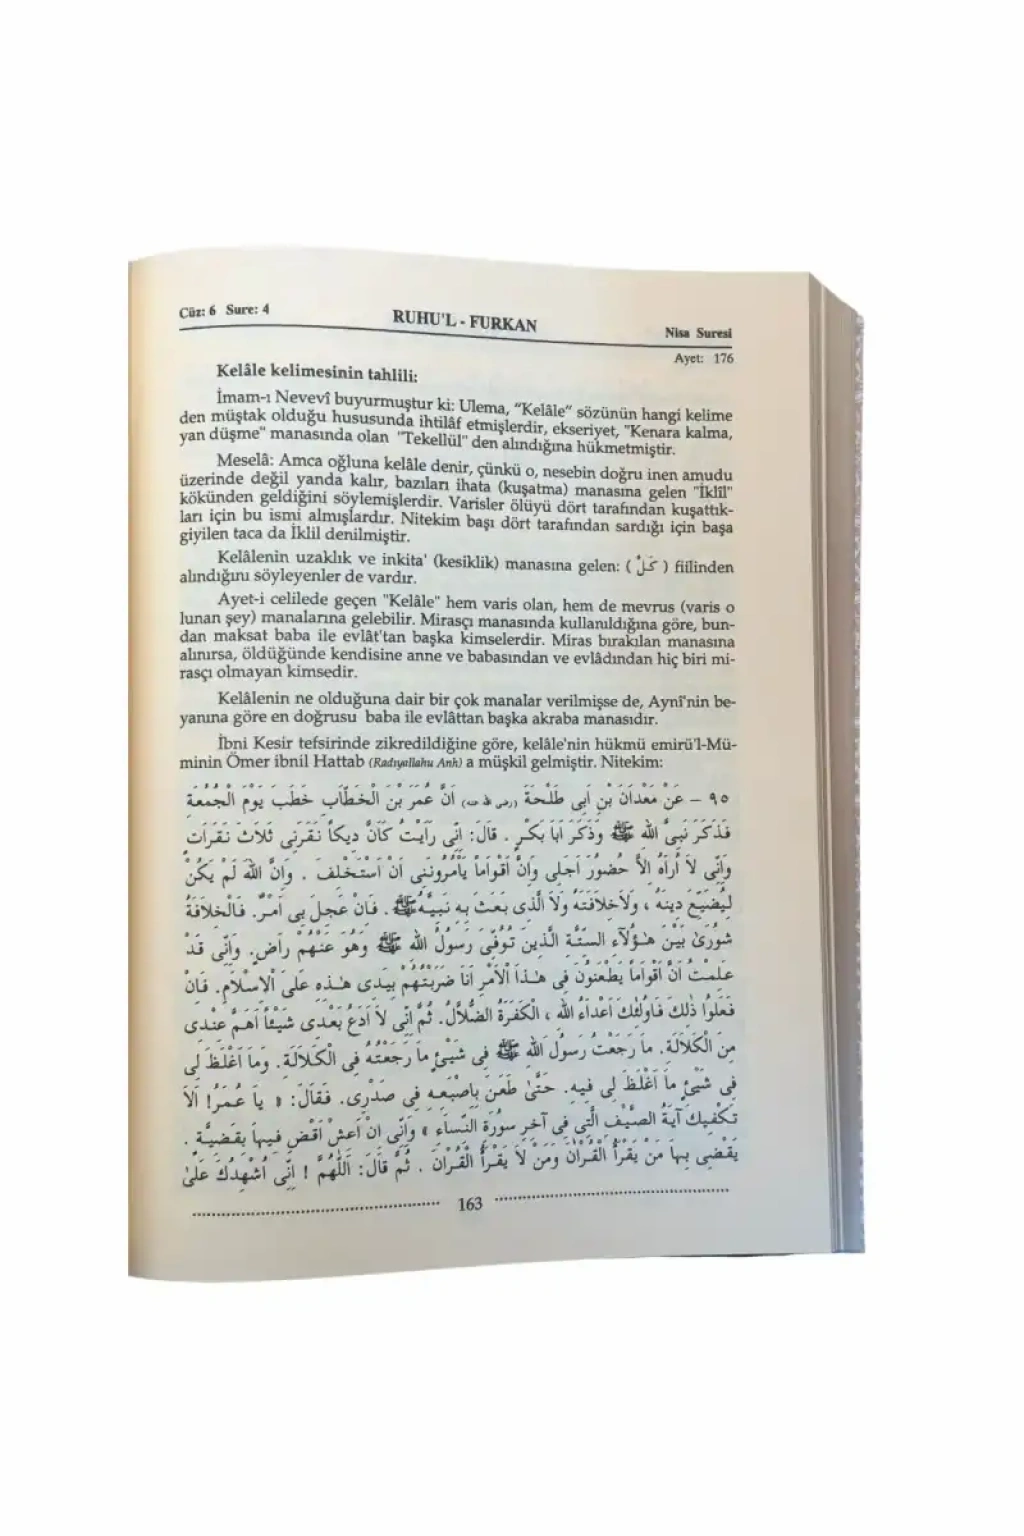 Cüz: 6 Sure: 4
RUHU'L - FURKAN
Nisa Suresi
Ayet: 176
Kelâle kelimesinin tahlili:
İmam-ı Nevevî buyurmuştur ki: Ulema, "Kelâle" sözünün hangi kelime
den müştak olduğu hususunda ihtilâf etmişlerdir, ekseriyet, "Kenara kalma,
yan düşme" manasında olan "Tekellül" den alındığına hükmetmiştir.
Meselâ: Amca oğluna kelâle denir, çünkü o, nesebin doğru inen amudu
üzerinde değil yanda kalır, bazıları ihata (kuşatma) manasına gelen "İklîl"
kökünden geldiğini söylemişlerdir. Varisler ölüyü dört tarafından kuşattık-
ları için bu ismi almışlardır. Nitekim başı dört tarafından sardığı için başa
giyilen taca da İklil denilmiştir.
Kelâlenin uzaklık ve inkita' (kesiklik) manasına gelen: ( كَلَّ ) fiilinden
alındığını söyleyenler de vardır.
Ayet-i celilede geçen "Kelâle" hem varis olan, hem de mevrus (varis o
lunan şey) manalarına gelebilir. Mirasçı manasında kullanıldığına göre, bun-
dan maksat baba ile evlât'tan başka kimselerdir. Miras bırakılan manasına
alınırsa, öldüğünde kendisine anne ve babasından ve evlâdından hiç biri mi-
rasçı olmayan kimsedir.
Kelâlenin ne olduğuna dair bir çok manalar verilmişse de, Aynî'nin be-
yanına göre en doğrusu baba ile evlâttan başka akraba manasıdır.
İbni Kesir tefsirinde zikredildiğine göre, kelâle'nin hükmü emirü'l-Mü-
minin Ömer ibnil Hattab (Radıyallahu Anh) a müşkil gelmiştir. Nitekim:
٩٥ – عَنْ مَعْدَانَ بْنِ اَبِى طَلْحَةَ (رضى الله عنه) اَنَّ عُمَرَ بْنَ الْخَطَّابِ خَطَبَ يَوْمَ الْجُمُعَةِ
فَذَكَرَ نَبِىَّ اللهِ ﷺ وَذَكَرَ اَبَا بَكْرٍ . قَالَ: اِنِّى رَاَيْتُ كَاَنَّ دِيكاً نَقَرَنِى ثَلاَثَ نَقَرَاتٍ
وَاِنِّى لاَ اُرَاهُ اِلاَّ حُضُورَ اَجَلِى وَاِنَّ اَقْوَاماً يَأْمُرُونَنِى اَنْ اَسْتَخْلِفَ . وَاِنَّ اللهَ لَمْ يَكُنْ
لِيُضَيِّعَ دِينَهُ ، وَلاَخِلاَفَتَهُ وَلاَ الَّذِى بَعَثَ بِهِ نَبِيَّهُ ﷺ . فَاِنْ عَجِلَ بِى اَمْرٌ. فَالْخِلاَفَةُ
شُورَىٰ بَيْنَ هٰؤُلآَءِ السِّتَّةِ الَّذِينَ تُوُفِّىَ رَسُولُ اللهِ ﷺ وَهُوَ عَنْهُمْ رَاضٍ. وَاِنِّى قَدْ
عَلِمْتُ اَنَّ اَقْوَاماً يَطْعَنُونَ فِى هٰذَا الْاَمْرِ اَنَا ضَرَبْتُهُمْ بِيَدِى هٰذِهِ عَلَى الْاِسْلاَمِ. فَاِنْ
فَعَلُوا ذٰلِكَ فَاُولٰئِكَ اَعْدَاءُ اللهِ ، الْكَفَرَةُ الضُّلاَّلُ. ثُمَّ اِنِّى لاَ اَدَعُ بَعْدِى شَيْئاً اَهَمَّ عِنْدِى
مِنَ الْكَلاَلَةِ. مَا رَجَعْتُ رَسُولَ اللهِ ﷺ فِى شَيْئٍ مَا رَجَعْتُهُ فِى الْكَلاَلَةِ. وَمَا اَغْلَظَ لِى
فِى شَيْئٍ مَا اَغْلَظَ لِى فِيهِ. حَتَّى طَعَنَ بِاِصْبَعِهِ فِى صَدْرِى. فَقَالَ: « يَا عُمَرُ! اَلاَ
تَكْفِيكَ آيَةُ الصَّيْفِ الَّتِى فِى آخِرِ سُورَةِ النِّسَاءِ » وَاِنِّى اِنْ اَعِشْ اَقْضِ فِيهاَ بِقَضِيَّةٍ .
يَقْضِى بِهاَ مَنْ يَقْرَأُ الْقُرْاٰنَ وَمَنْ لاَ يَقْرَأُ الْقُرْاٰنَ . ثُمَّ قَالَ: اَللّٰهُمَّ ! اِنِّى اُشْهِدُكَ عَلَىٰ
163